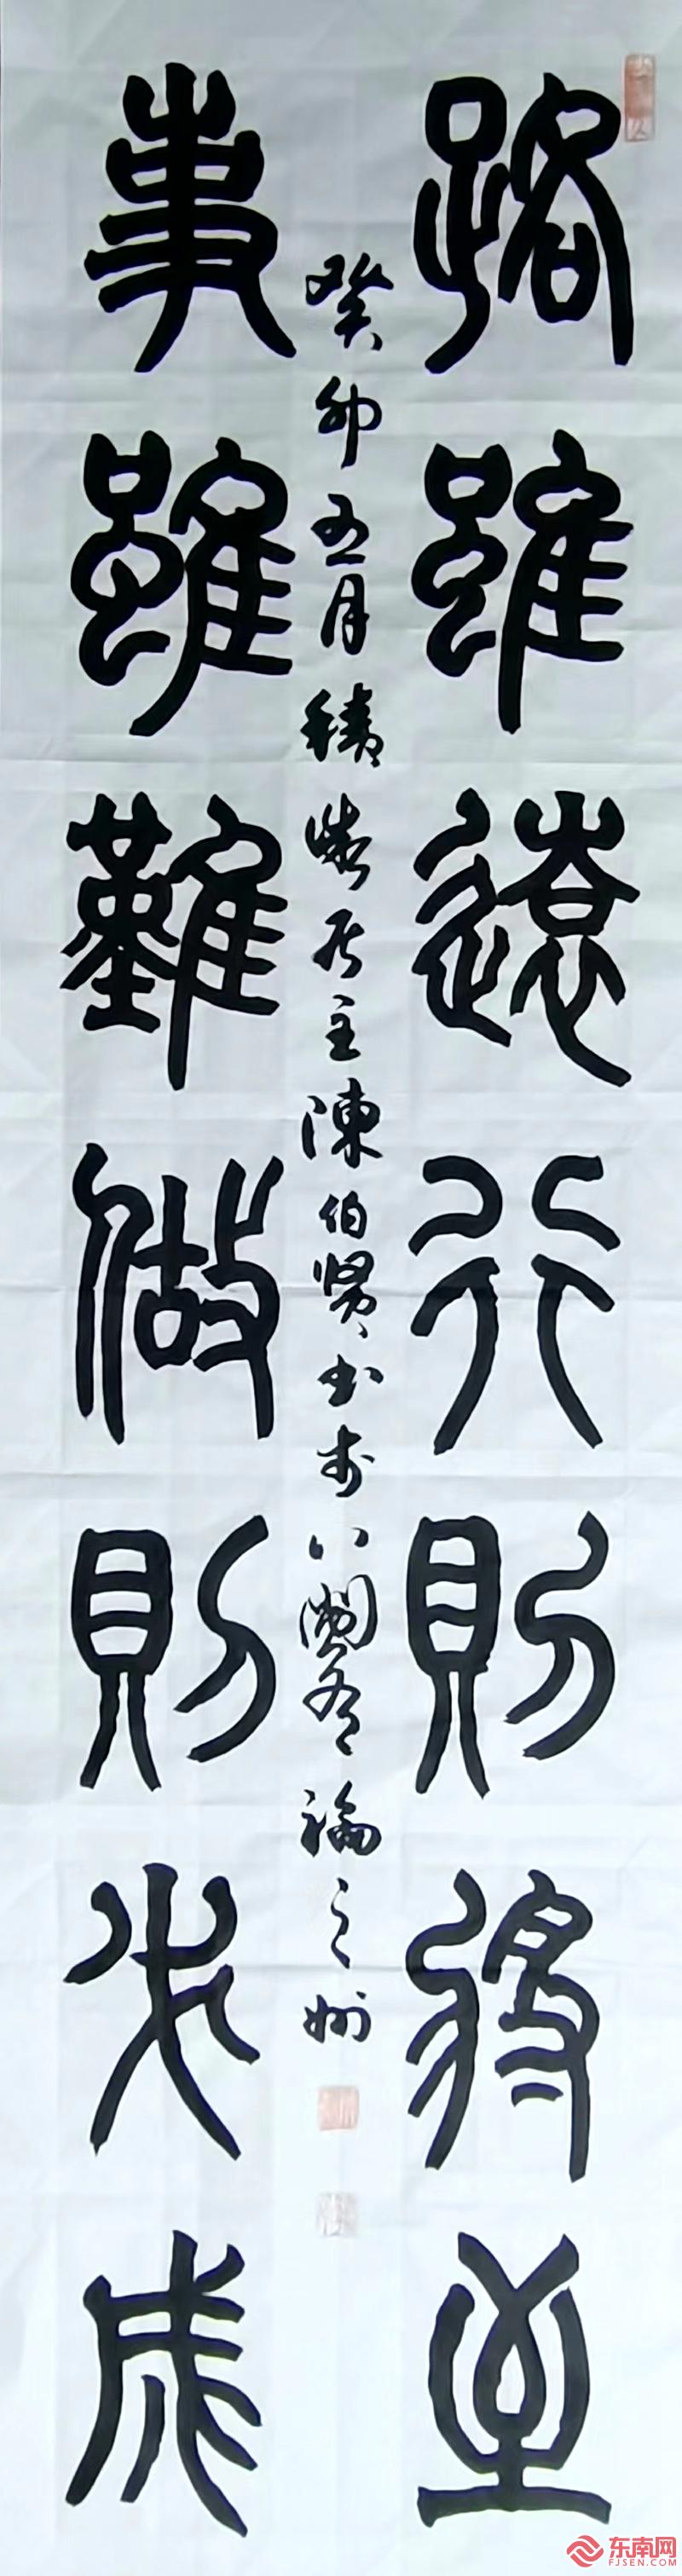 路雖遠行則將至
癸卯五月積居主陳伯賢書於八閩有福之州
事雖難做則必成
东南网
FJSEN.COM